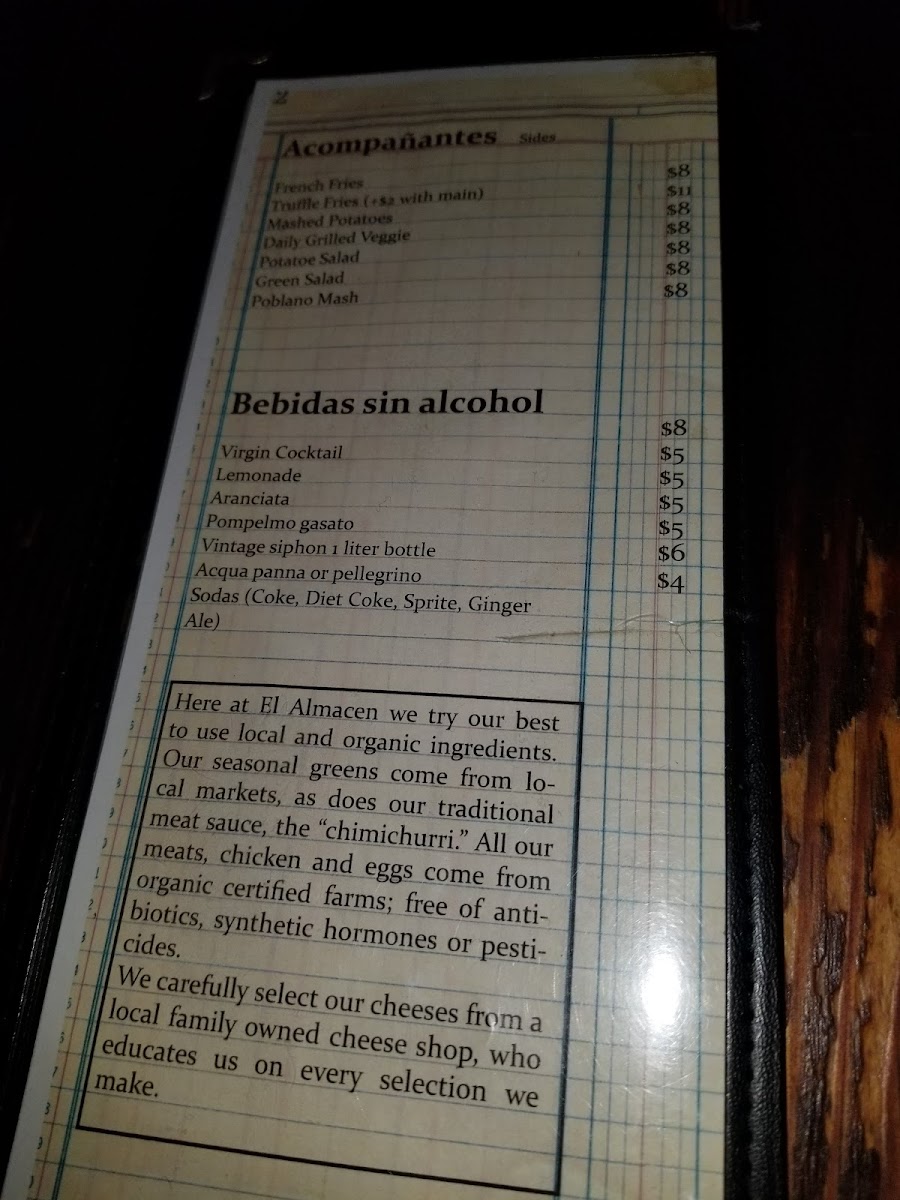 Acompañantes Sides
French Fries $8
Truffle Fries (+$2 with main) $11
Mashed Potatoes $8
Daily Grilled Veggie $8
Potatoe Salad $8
Green Salad $8
Poblano Mash $8
Bebidas sin alcohol
Virgin Cocktail $8
Lemonade $5
Aranciata $5
Pompelmo gasato $5
Vintage siphon 1 liter bottle $5
Acqua panna or pellegrino $6
Sodas (Coke, Diet Coke, Sprite, Ginger $4
Ale)
Here at El Almacen we try our best
to use local and organic ingredients.
Our seasonal greens come from lo-
cal markets, as does our traditional
meat sauce, the “chimichurri.” All our
meats, chicken and eggs come from
organic certified farms; free of anti-
biotics, synthetic hormones or pesti-
cides.
We carefully select our cheeses from a
local family owned cheese shop, who
educates us on every selection we
make.